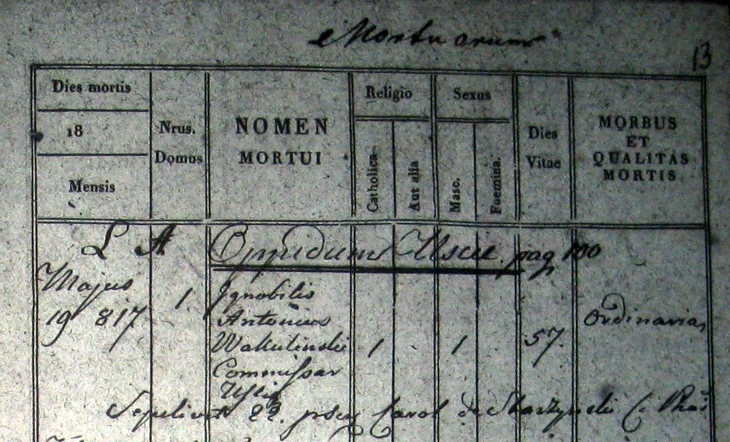 Mortuorum
13
Dies mortis
18
Mensis
Nrus.
Domus
NOMEN
MORTUI
Religio
Catholica
Aut alia
Sexus
Masc.
Foemina.
Dies
Vitae
MORBUS
ET
QUALITAS
MORTIS
L A Oppidum Uscie pag 100
Majus
19 817
1
Ignobilis
Antonius
Commissar
1
1
57
Ordinaria
Sepelivit 22 Carol de C.